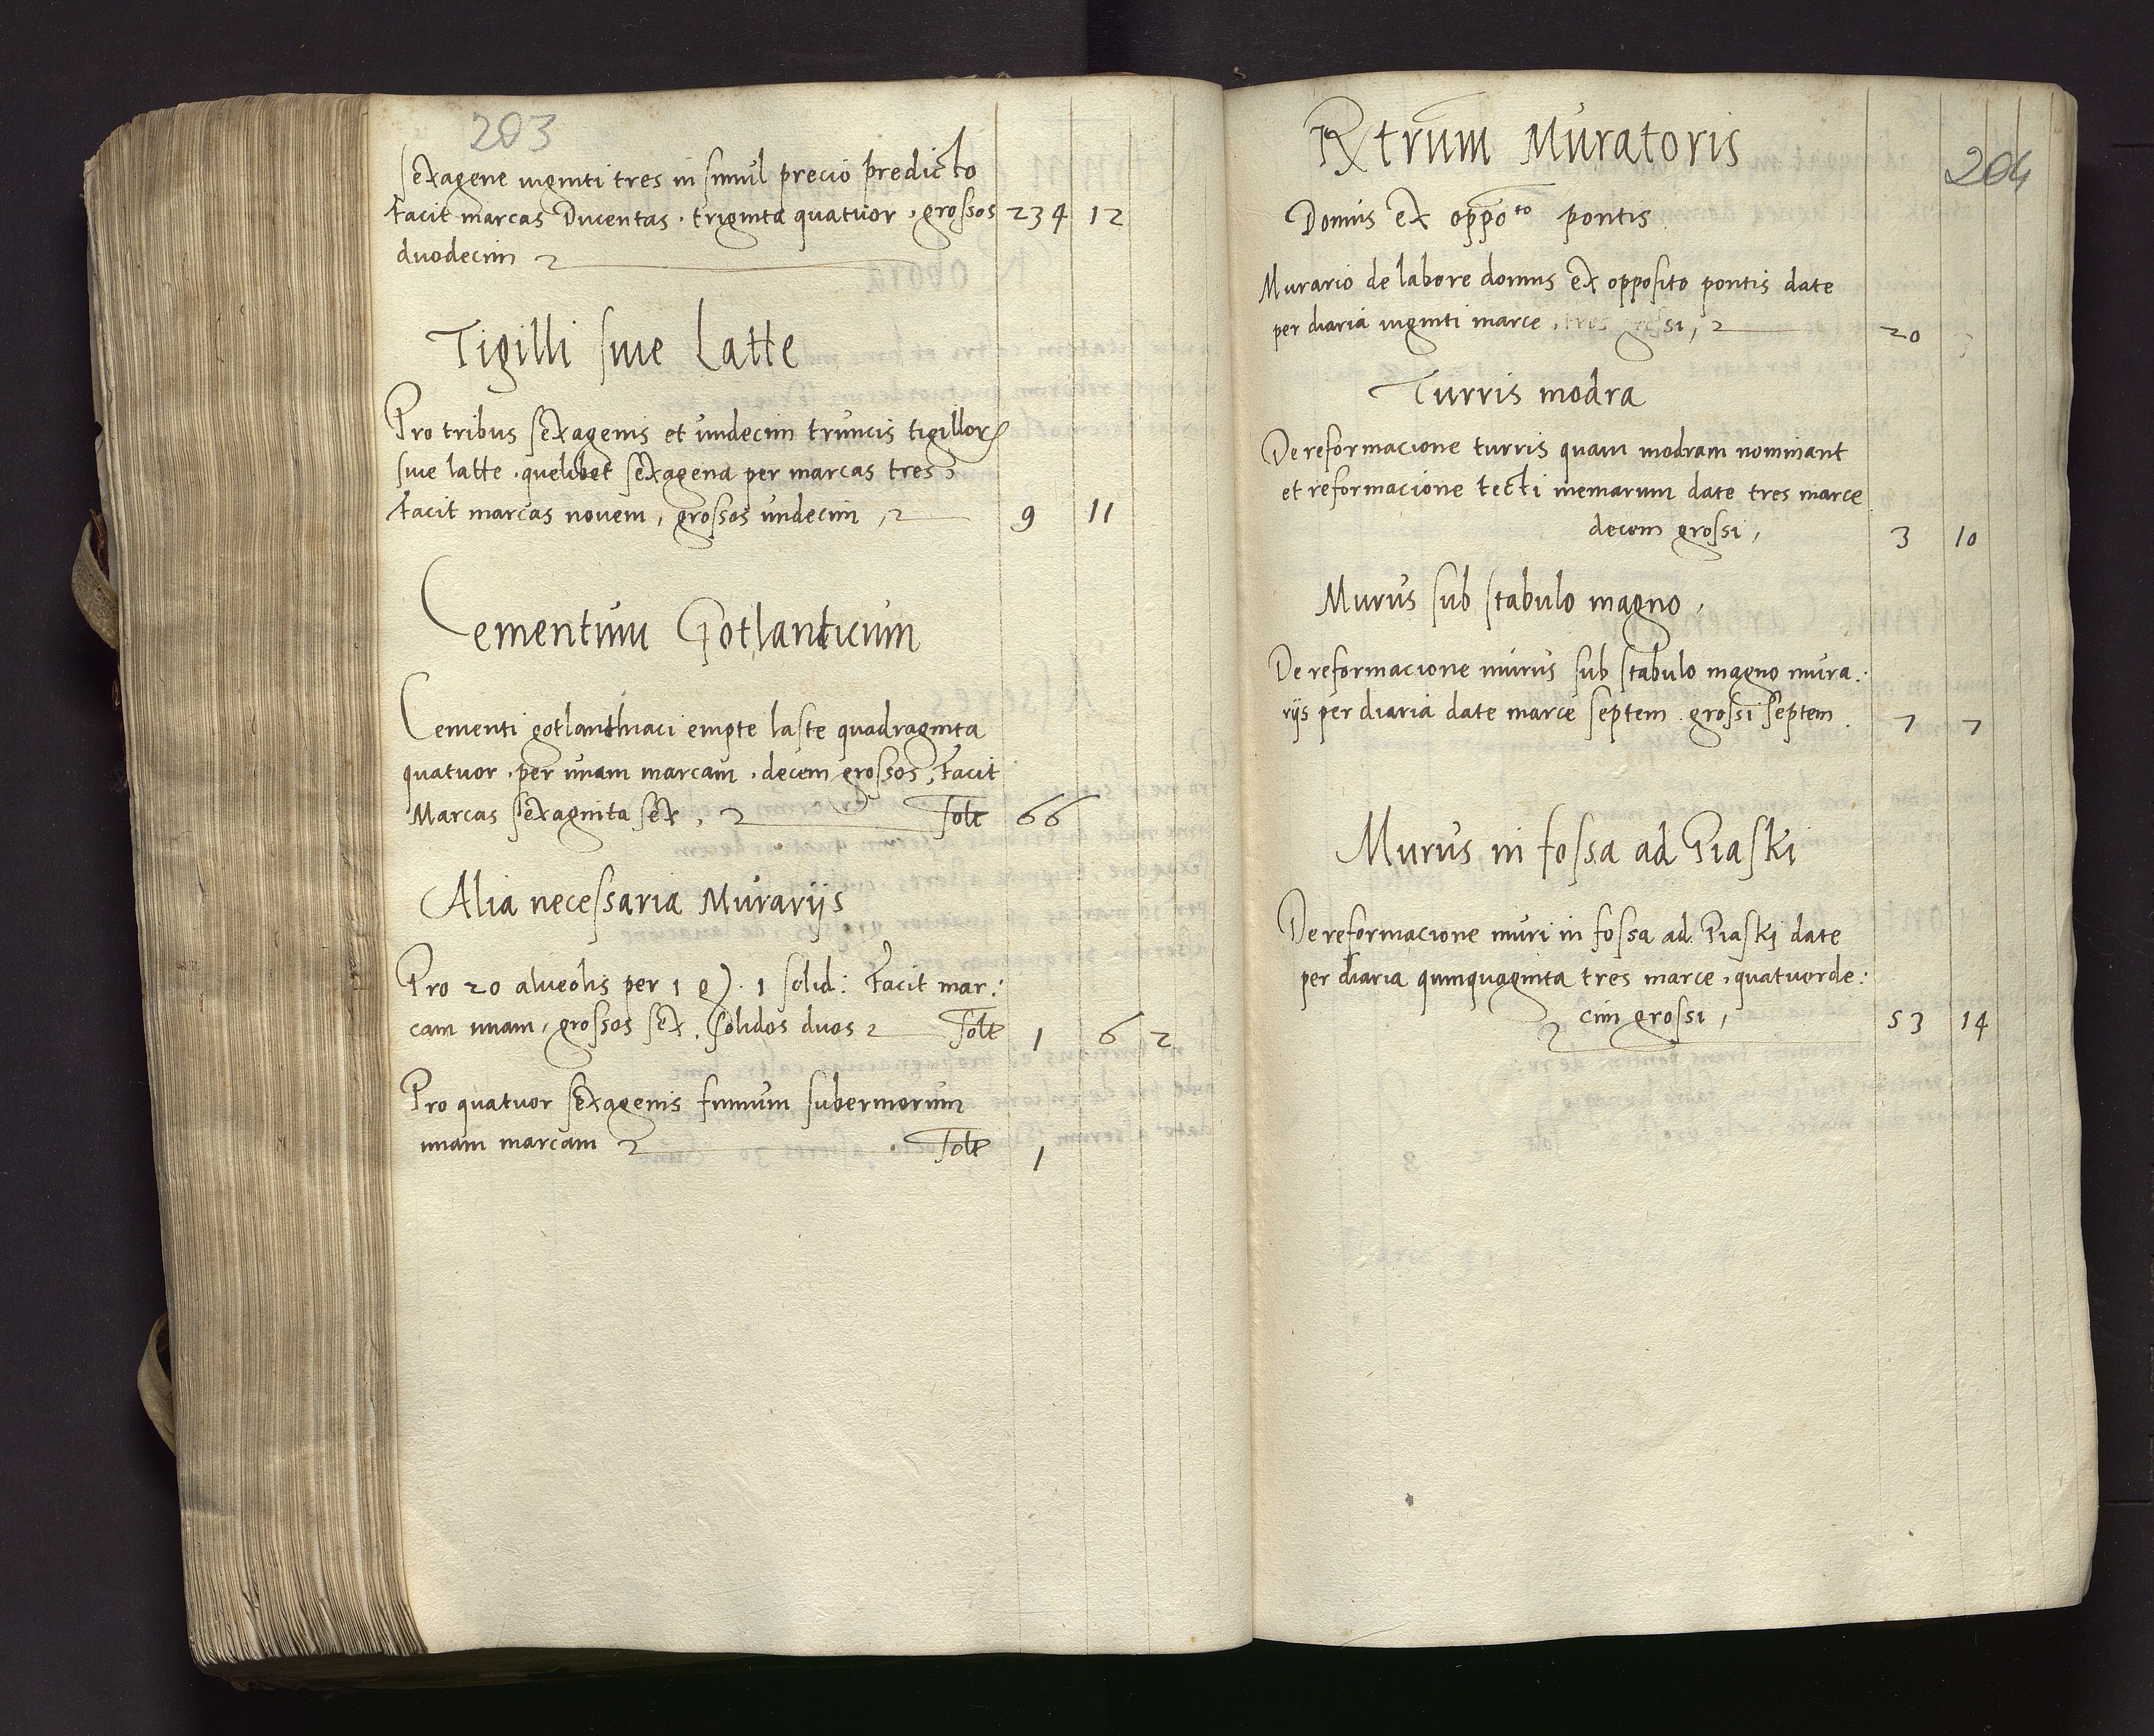 203
sexagene viginti tres in simul precio predicto
Facit marcas Ducentas . triginta quatuor . grossos 234 12
duodecim
Tigilli sive Latte
Pro tribus sexagenis et undecim truncis tigillor
sive latte . quelibet sexagena per marcas tres,
Facit marcas novem, grossos undecim, 9 11
Cementum Gotlanticum
Cementi gotlanthiaci empte laste quadraginta
quatuor . per unam marcam . decem grossos, Facit
Marcas sexaginta sex, Solt 66
Alia necessaria Murariis
Pro 20 alveolis per 1 1 solid: Facit mar:
cam unam, grossos sex. solidos duos Solt 1 6 2
Pro quatuor sexagenis funium suberinorum
unam marcam Solt 1
204
Rxtrum Muratoris
Domus ex oppoto pontis
Murario de labore domus ex opposito pontis date
per diaria viginti marce, tres grossi, 20 3
Turris modra
De reformacione turris quam modram nominant
et reformacione tecti memarum date tres marce
decem grossi, 3 10
Murus sub stabulo magno,
De reformacione murus sub stabulo magno mura:
riis per diaria date marce septem . grossi septem . 7 7
Murus in fossa ad Piaski
De reformacione muri in fossa ad Piaski date
per diaria quinquaginta tres marce, quatuorde:
cim grossi, 53 14